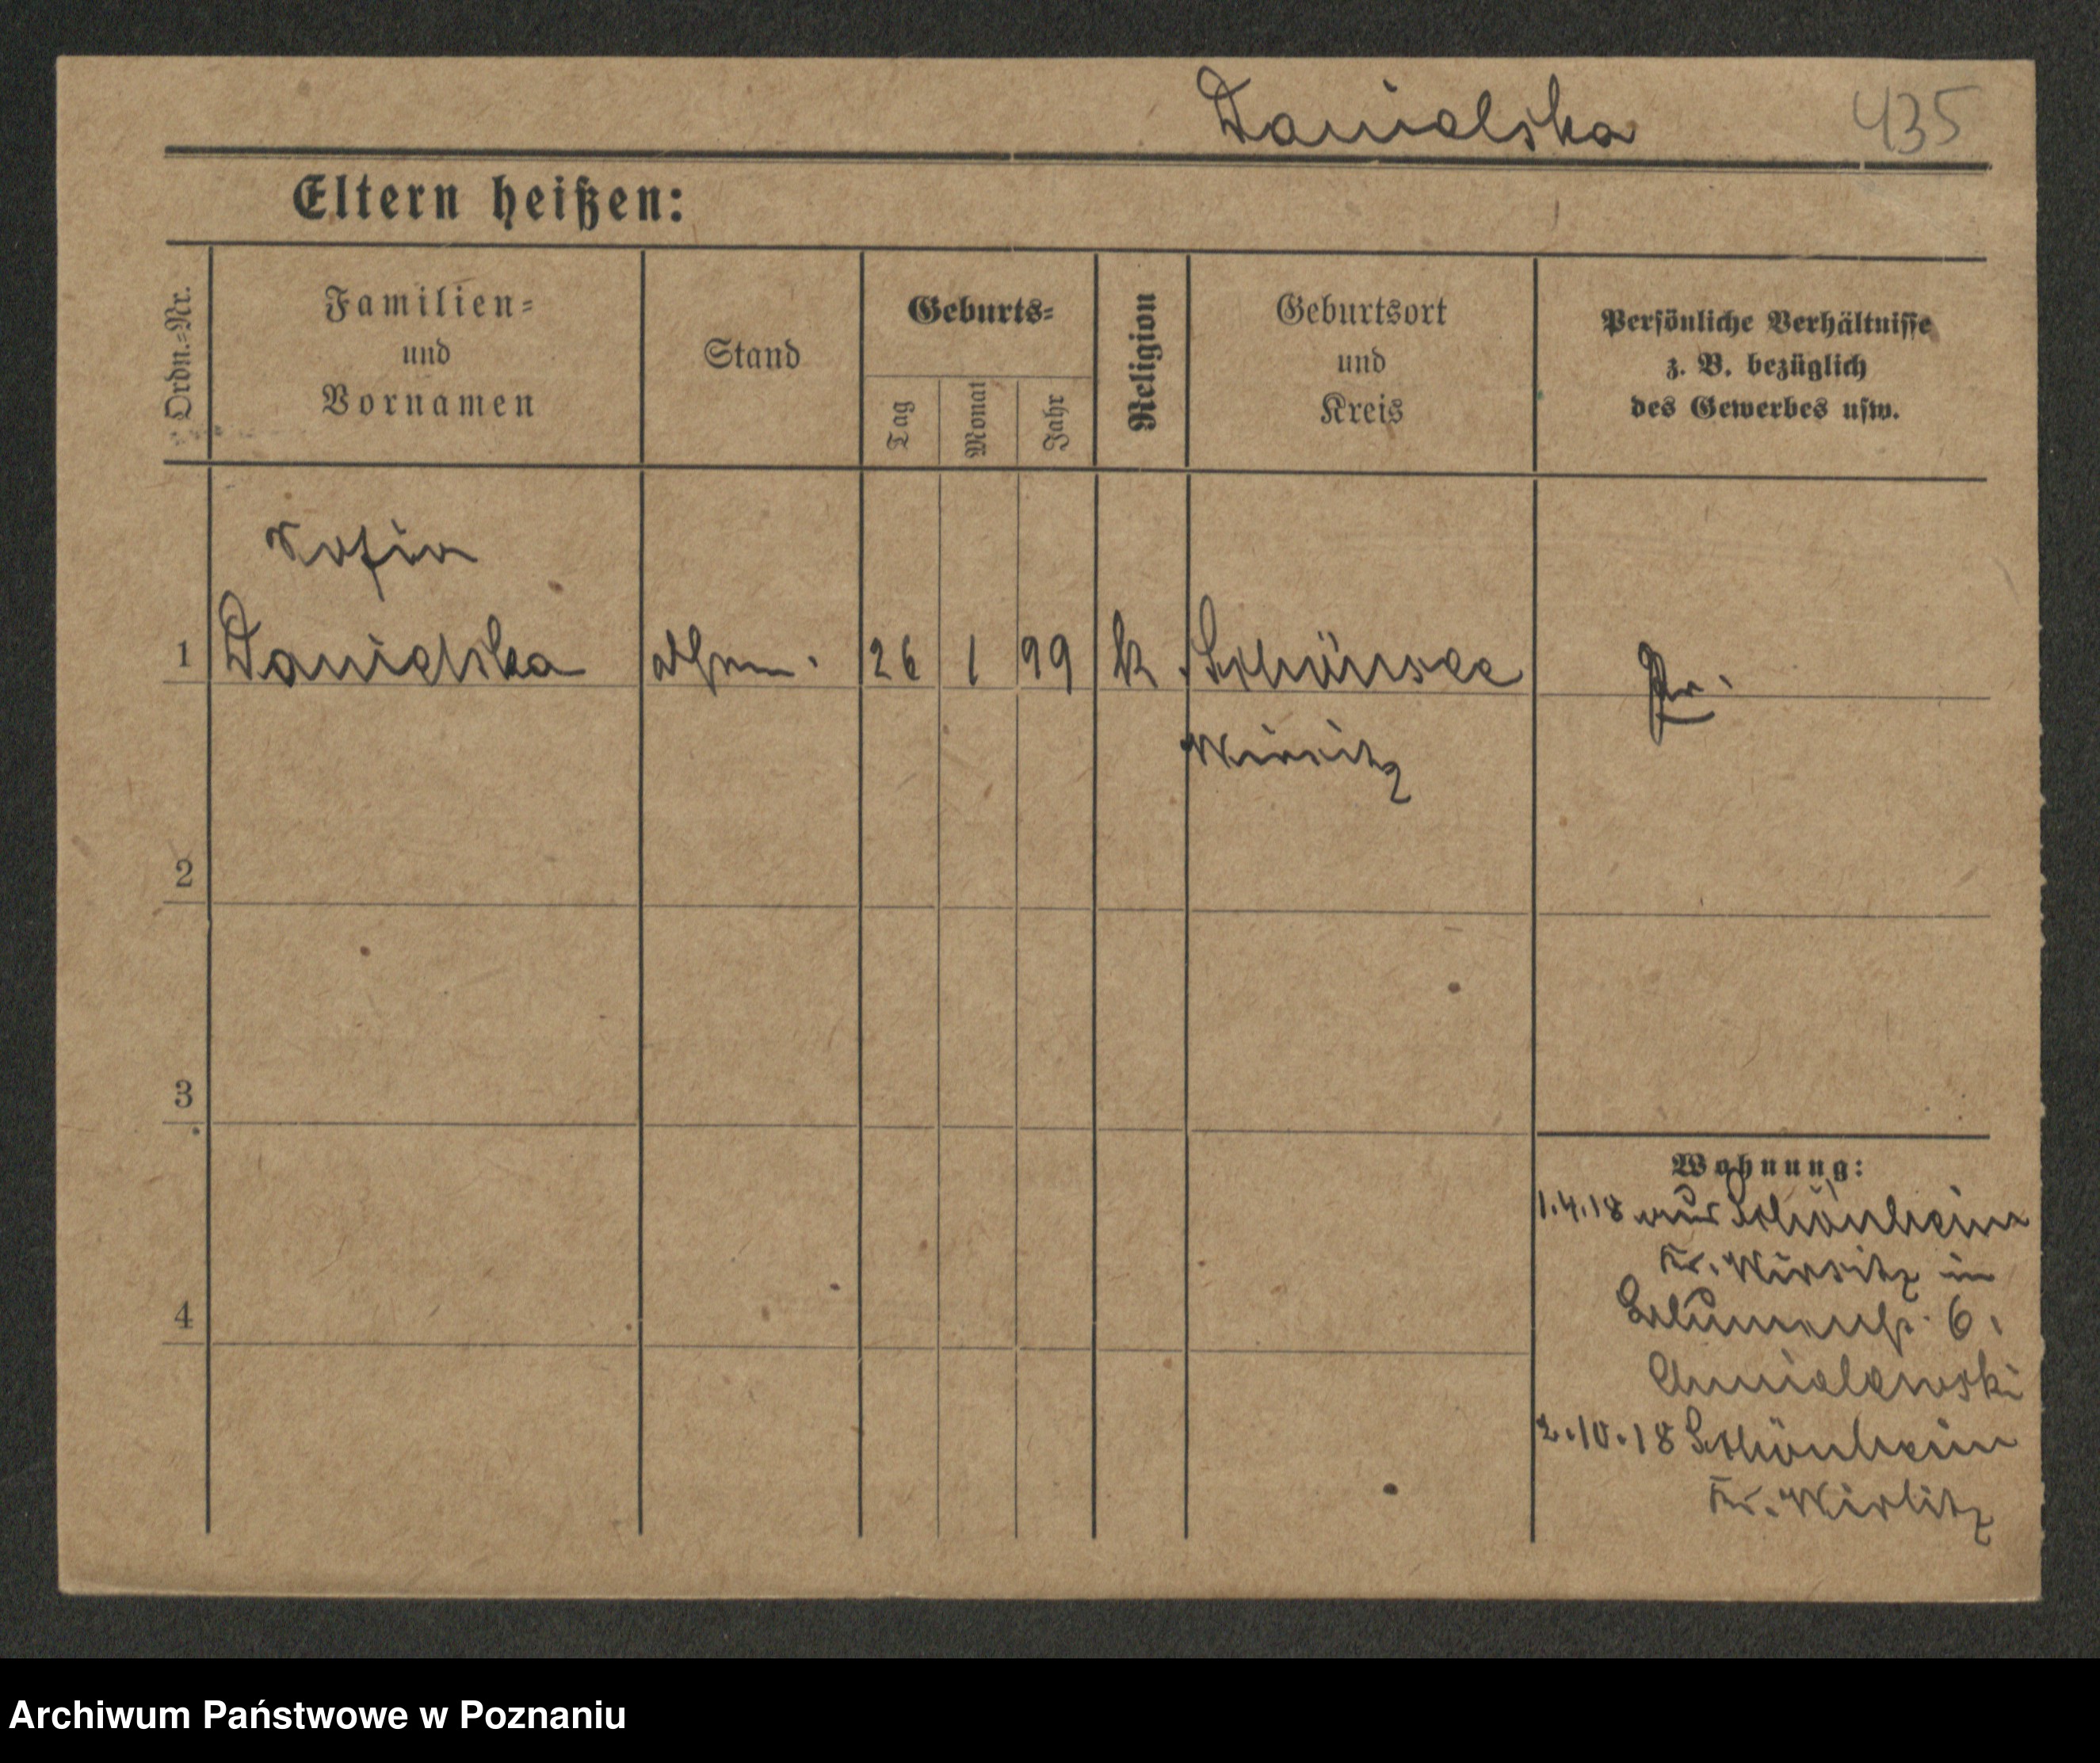 Danielska 435
Eltern heißen:
Ordn.-Nr.
Familien-
und
Vornamen
Stand
Geburts-
Tag
Monat
Jahr
Religion
Geburtsort
und
Kreis
Persönliche Verhältnisse
z. B. bezüglich
des Gewerbes usw.
Sofia
1 Danielska 26 1 99 k. Schönsee Pr.
Wirsitz
2
3
4
Wohnung:
1.4.18 aus Schönheim
Kr. Wirsitz in
Blumenstr. 6.
Chmielewski
2.10.18 Schönheim
Kr. Wirsitz
Archiwum Państwowe w Poznaniu